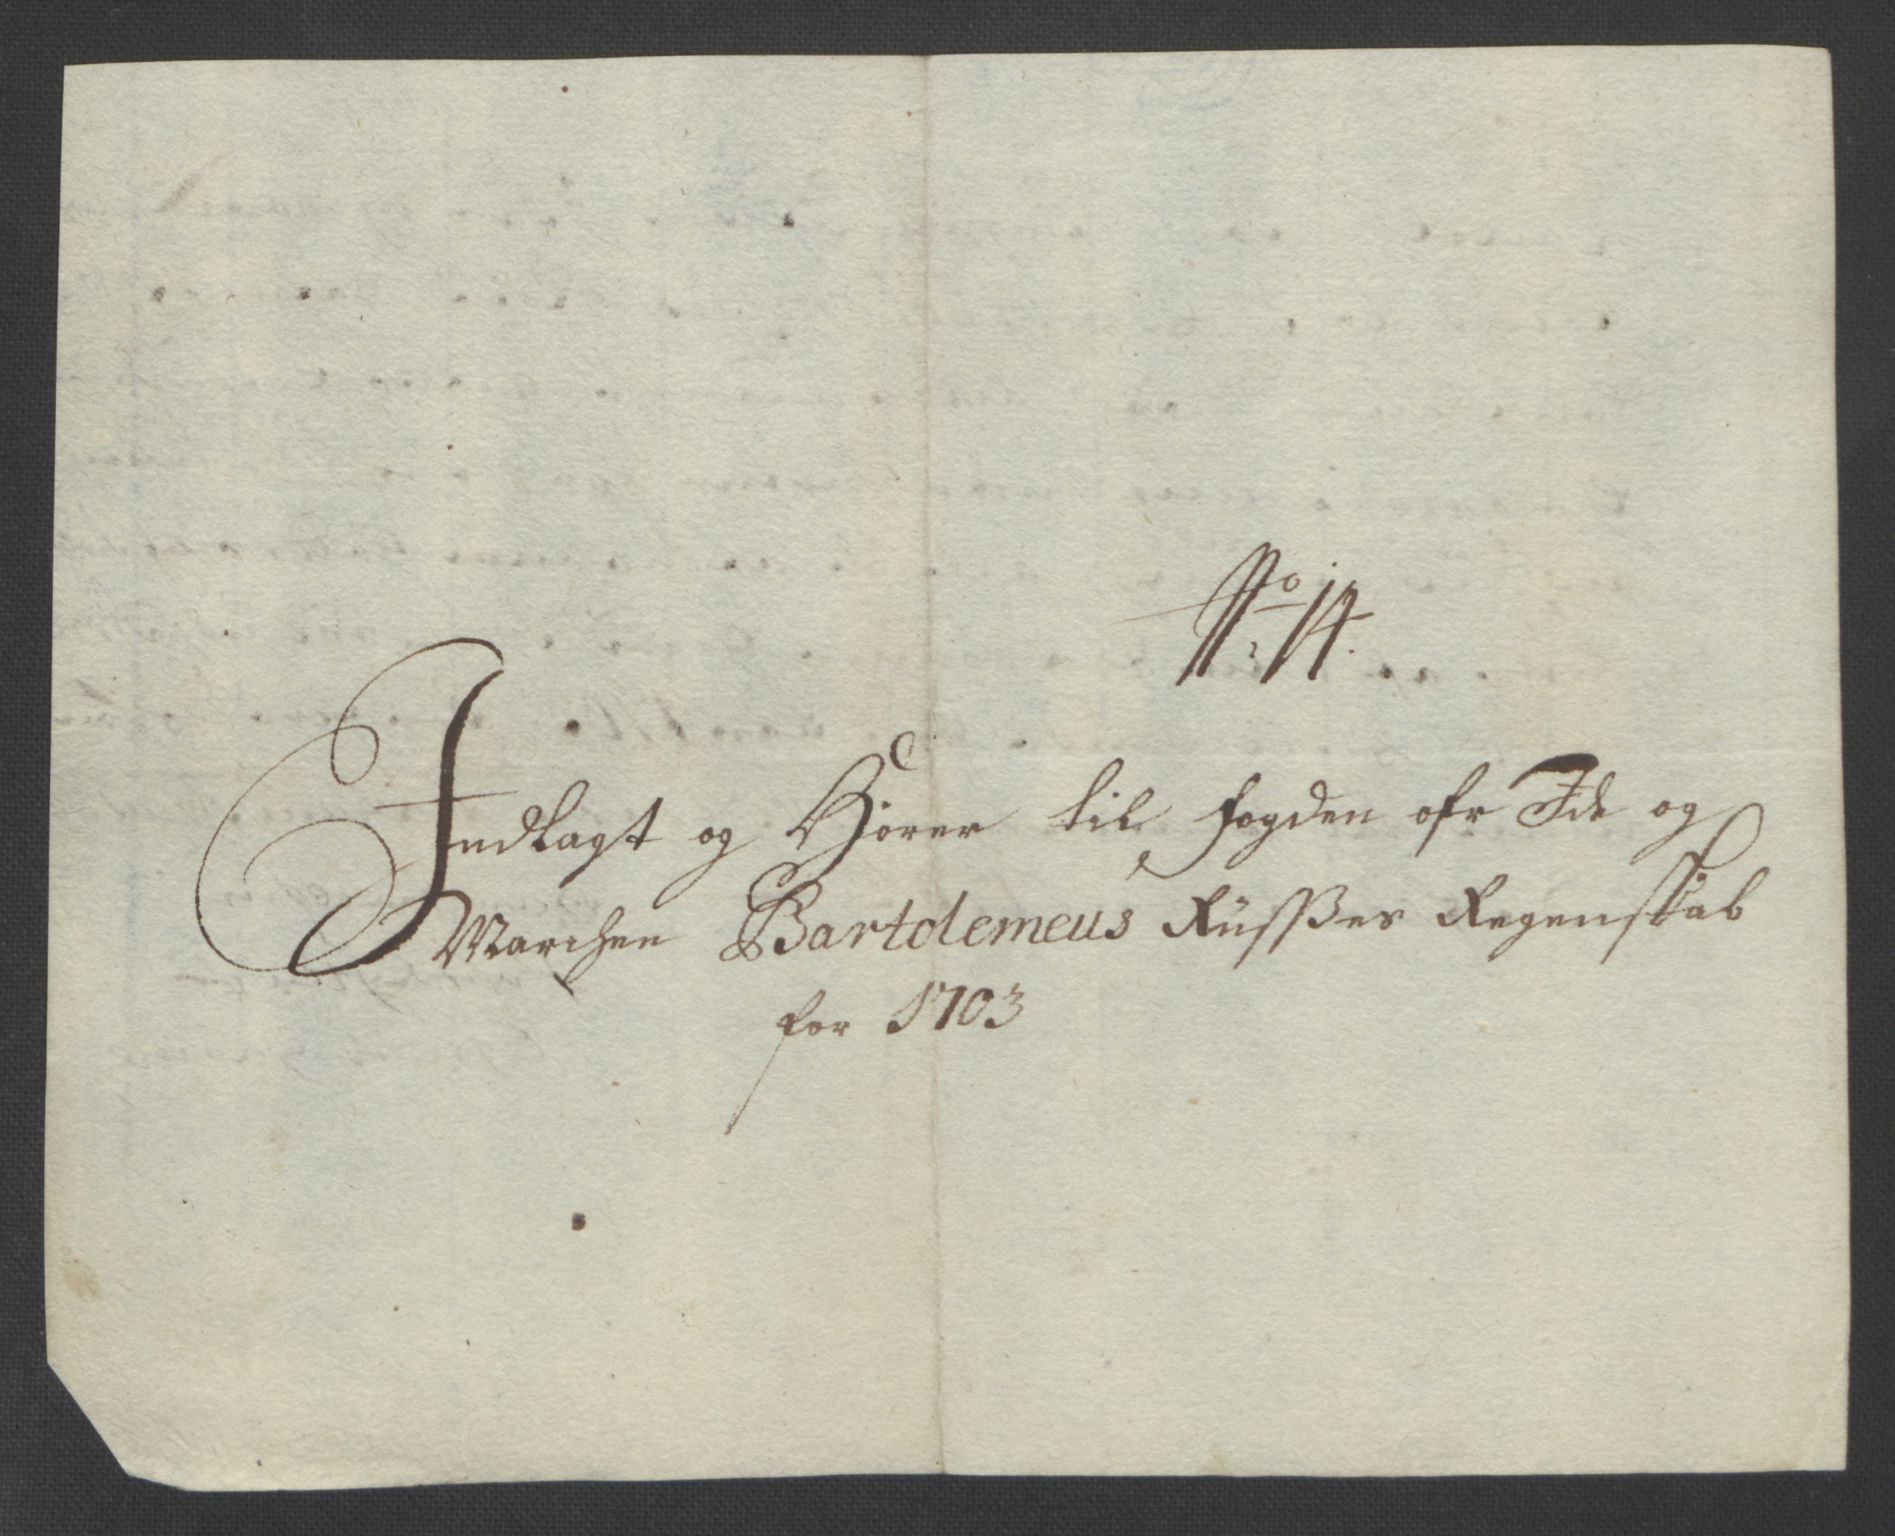 No: 14.
Indlagt og Hörer til fogden ofr Ide og
Marchen Bartolemeus Rüsses Regenskab
for 1703